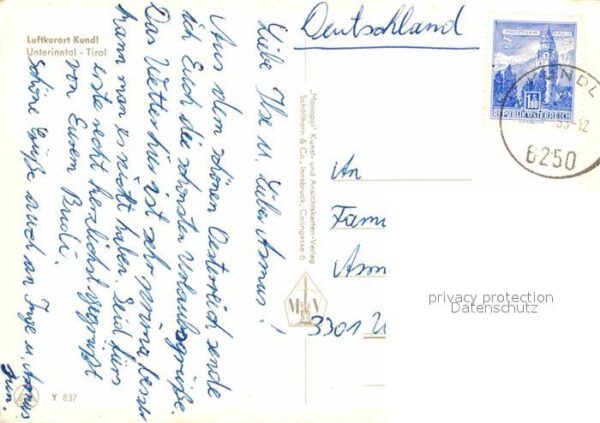 Luftkurort Kundl
Unterinntal - Tirol
Deutschland
Liebe Ilse u. Lieber Asmus!
Aus dem schönen Oesterreich sende
ich Euch die schönsten Urlaubsgrüße.
Das Wetter hier ist sehr prima, besser
kann man es nicht haben. Seid fürs
erste recht herzlichst gegrüßt
von Eurem
Schöne Grüße auch an Inge u. Asmus
jun.
"Monopol" Kunst- und Ansichtskarten-Verlag
Schöllhorn & Co., Innsbruck, Colingasse 6
Y 837
REPUBLIK ÖSTERREICH
1.80
6250
An
Fam
Asm
3301
privacy protection
Datenschutz